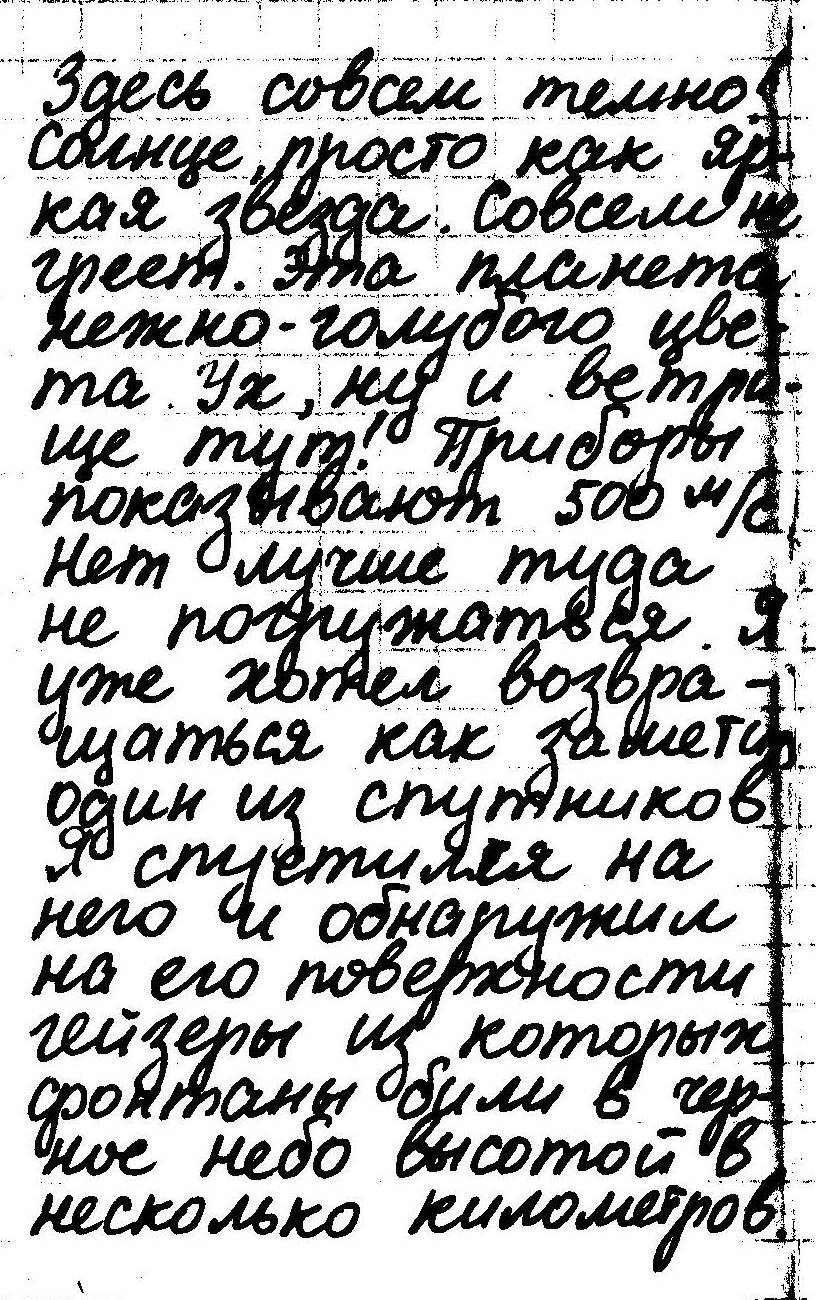 Здесь совсем темно!
Солнце, просто как яр-
кая звезда. Совсем не
греет. Эта планета
нежно-голубого цве-
та. Ух, ну и ветри-
ще тут! Приборы
показывают 500 м/с.
Нет лучше туда
не погружаться. Я
уже хотел возвра-
щаться как заметил
один из спутников
Я спустился на
него и обнаружил
на его поверхности
гейзеры из которых
фонтаны били в чер-
ное небо высотой в
несколько километров.